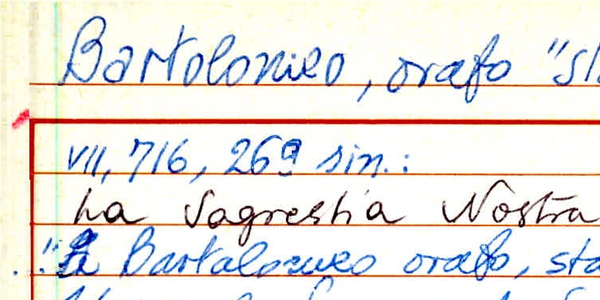 Bartolomeo, orafo "st
VII, 716, 269 sin.:
La Sagrestia Nostra
Bartolomeo orafo, sta